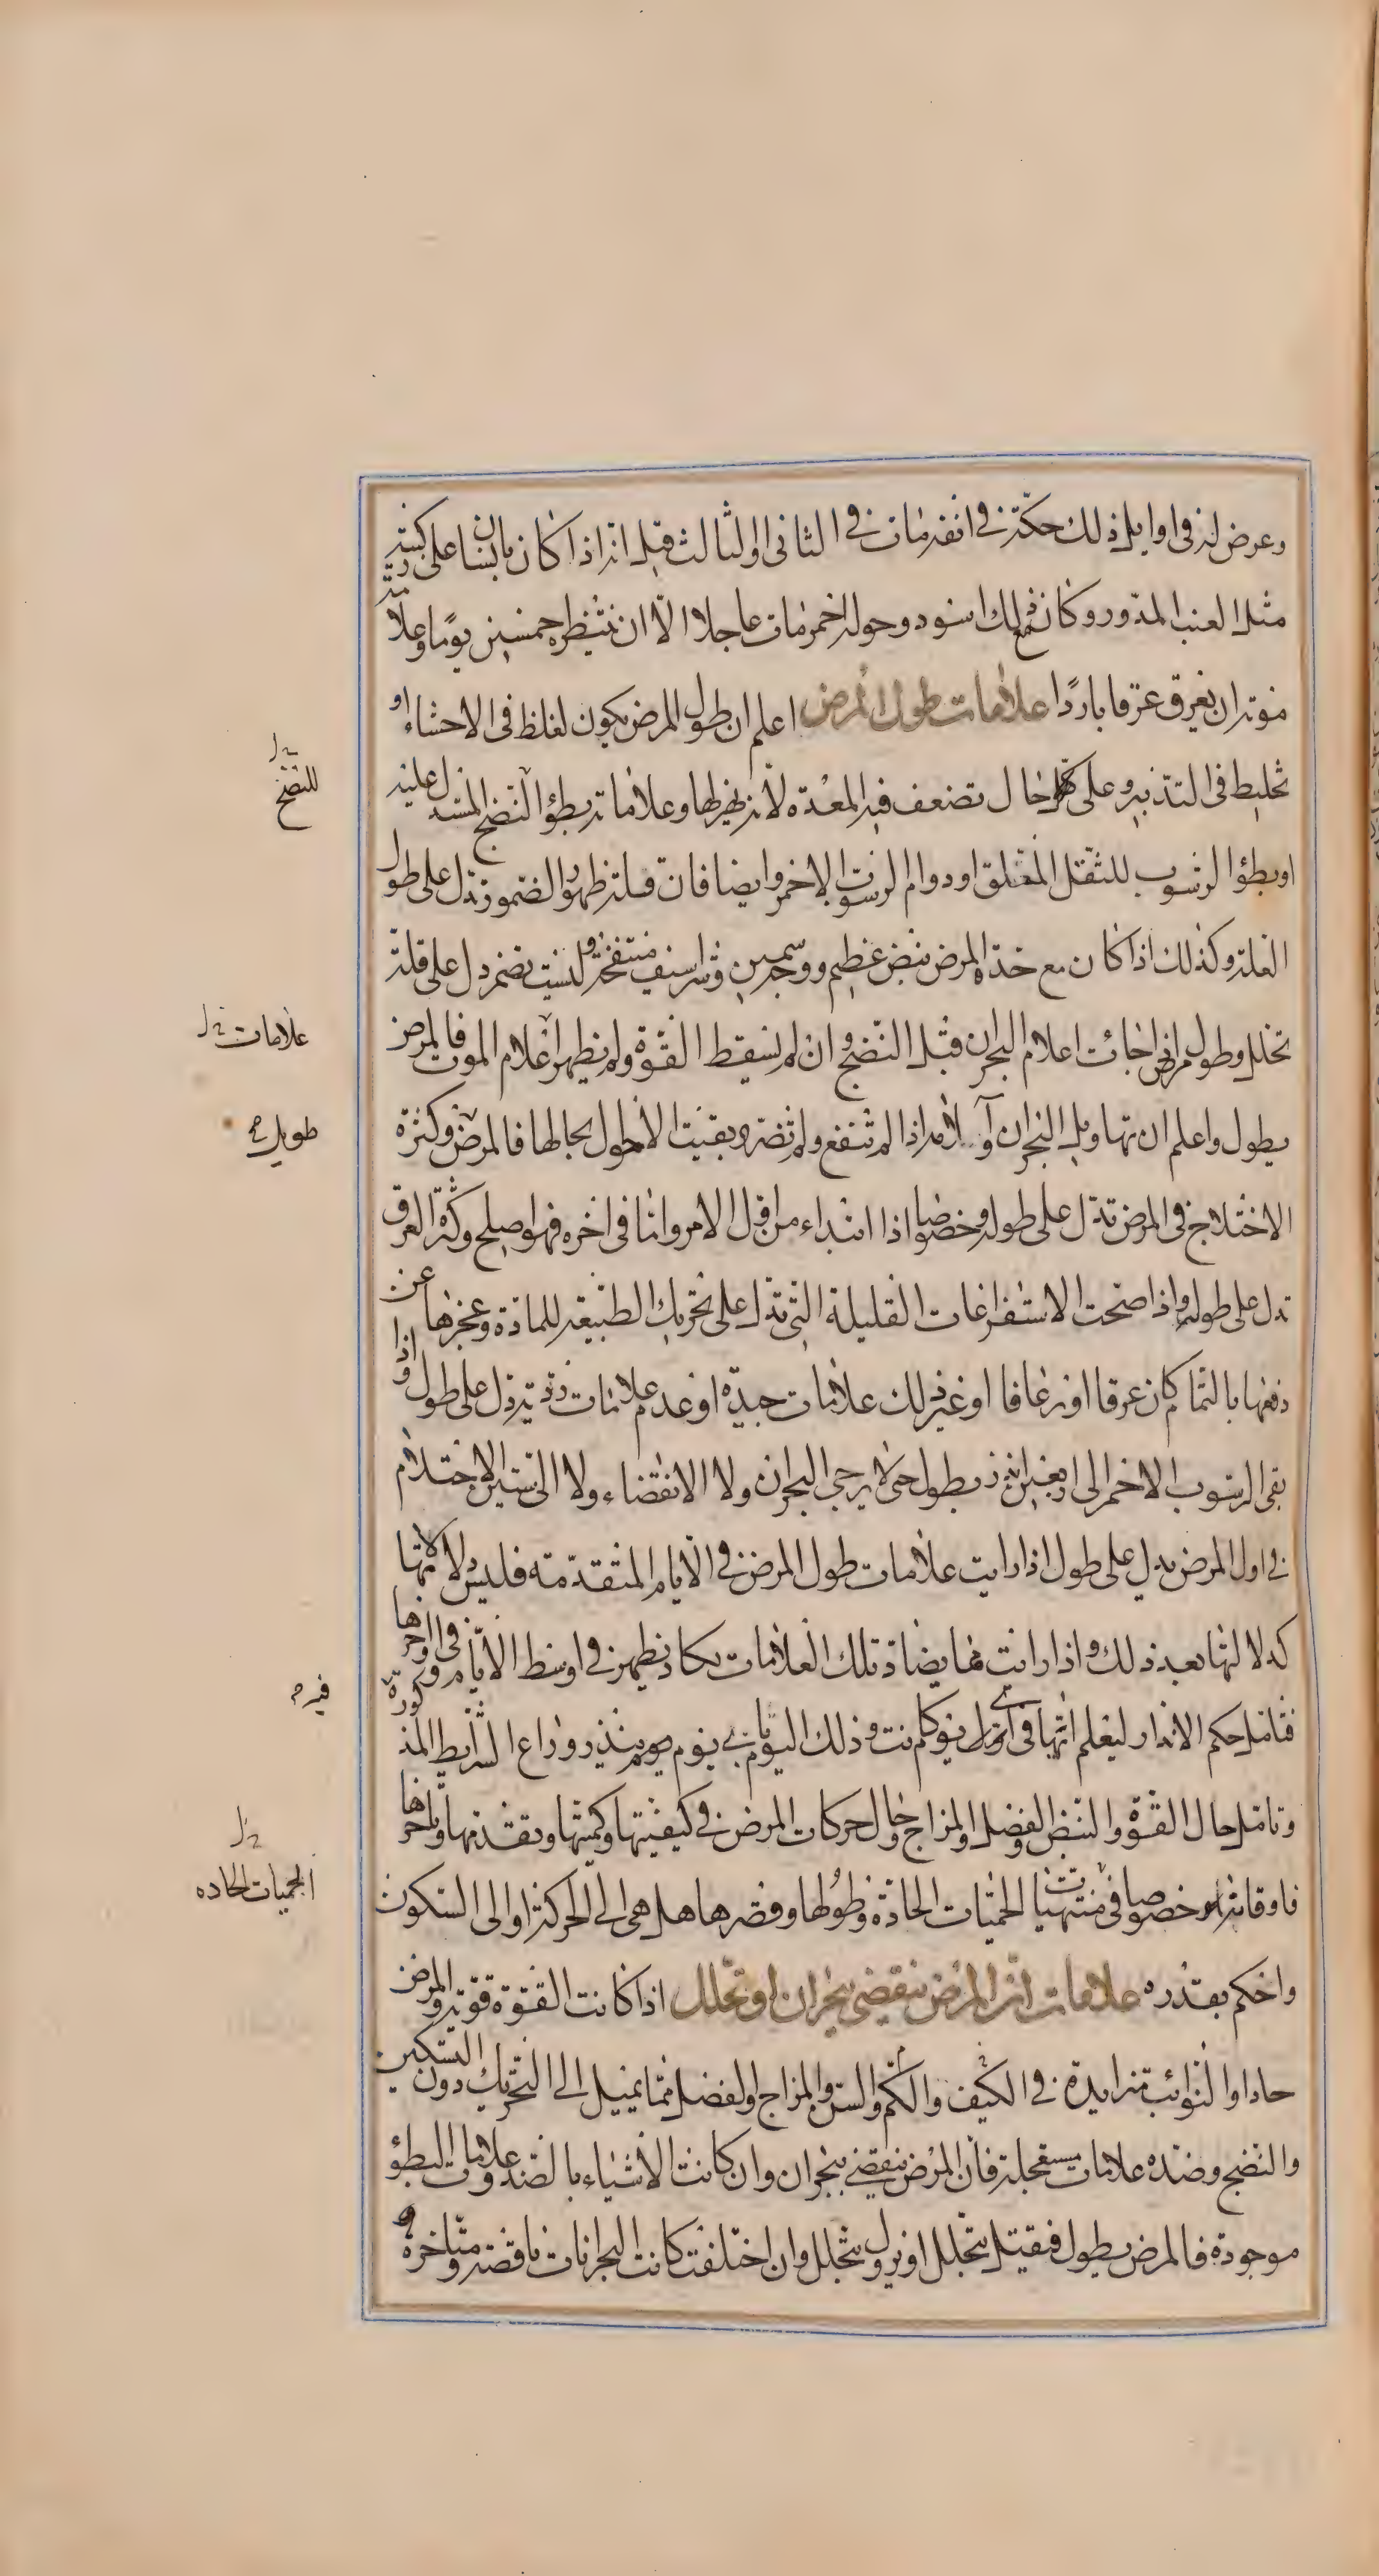 وعرض له في اوايل ذلك حكة في انفه مات في الثاني او الثالث قيل انه اذا كان بانسان على ركبتيه
مثل العنب المدور وكان ذلك اسود وحوله احمر مات عاجلا الا ان ينتظر خمسين يوما وعلامة
موته ان يعرق عرقا باردا علامات طول المرض اعلم ان طول المرض يكون لغلظ في الاحشاء او
تخليط في التدبير وعلى كل حال تضعف فيه المعدة لانه يهزلها وعلاماته بطؤ النضج المستدل عليه
او بطؤ الرسوب للثفل المتعلق او دوام الرسوب الاحمر وايضا فان قلة ظهور الضمور تدل على طول
العلة وكذلك اذا كان مع حدة المرض نبض عظيم ووجه سمين وشراسيف منتفخة وليست تضمر دل على قلة
تحلل وطول مرض اذا جائت اعلام البحران قبل النضج وان لم تسقط القوة ولم يظهر اعلام الموت فالمرض
يطول واعلم ان تهاويل البحران وآلامه اذا لم تنفع ولم تضر وبقيت الاحوال بحالها فالمرض وكثرة
الاختلاج في المرض تدل على طوله وخصوصا اذا ابتداء من اول الامر واما في اخره فهو اصلح وكثرة العرق
تدل على طوله واذا صحت الاستفراغات القليلة التي تدل على تحريك الطبيعة للمادة وعجزها عن
دفعها بالتمام كان عرقا او رعافا او غير ذلك علامات جيدة او عدم علامات ردية دل على طول واذا
بقى الرسوب الاحمر الى اربعين انذر بطول حتى لا يرجى البحران ولا الانقضاء ولا الى ستين الاحتلام
في اول المرض يدل على طول اذا رايت علامات طول المرض في الايام المتقدمة فليس دلالاتها
كدلالتها بعد ذلك واذا رايت مما يضاد تلك العلامات يكاد يظهر في اوسط الايام وفي اواخرها
فتامل حكم الانذار ليعلم انها في اى يوم كانت وذلك اليوم باى يوم ينذر وراع الشرايط المذكورة
وتامل حال القوة والنبض والفصل والمزاج وحال حركات المرض في كيفيتها وكميتها وتقدمها وتاخرها
فاوقاته وخصوصا في منتهيات الحميات الحادة وطولها وقصرها هل هي الى الحركة او الى السكون
واحكم بقدره علامات ان المرض ينقضي ببحران او تحلل اذا كانت القوة قوية والمرض
حادا والنوائب متزايدة في الكيف والكم والسن والمزاج والفصل مما يميل الى التحريك دون التسكين
والنضج وضده علامات مستعجلة فان المرض ينقضي ببحران وان كانت الاشياء بالضد وعلامات البطؤ
موجودة فالمرض يطول فيقتل بتحلل او يزول بتحلل وان اختلفت كانت البحرانات ناقصة ومتاخرة و
للنضج
علامات
طويل
فيه
الحميات الحاده